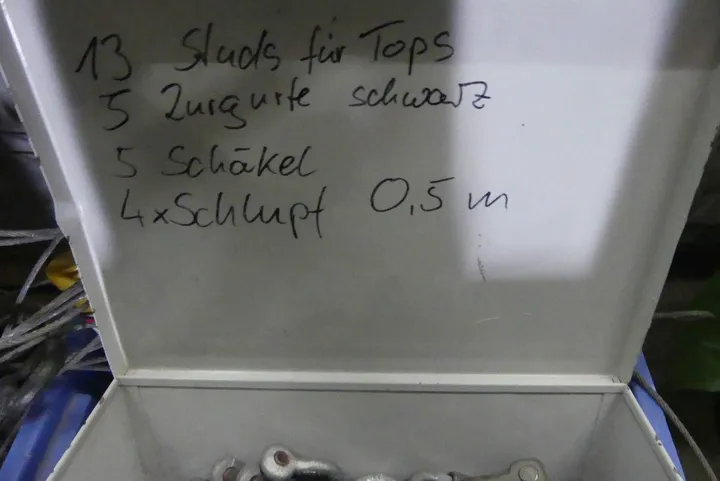 13 Studs für Tops
5 Zurgurte schwarz
5 Schäkel
4x Schlupf 0,5 m